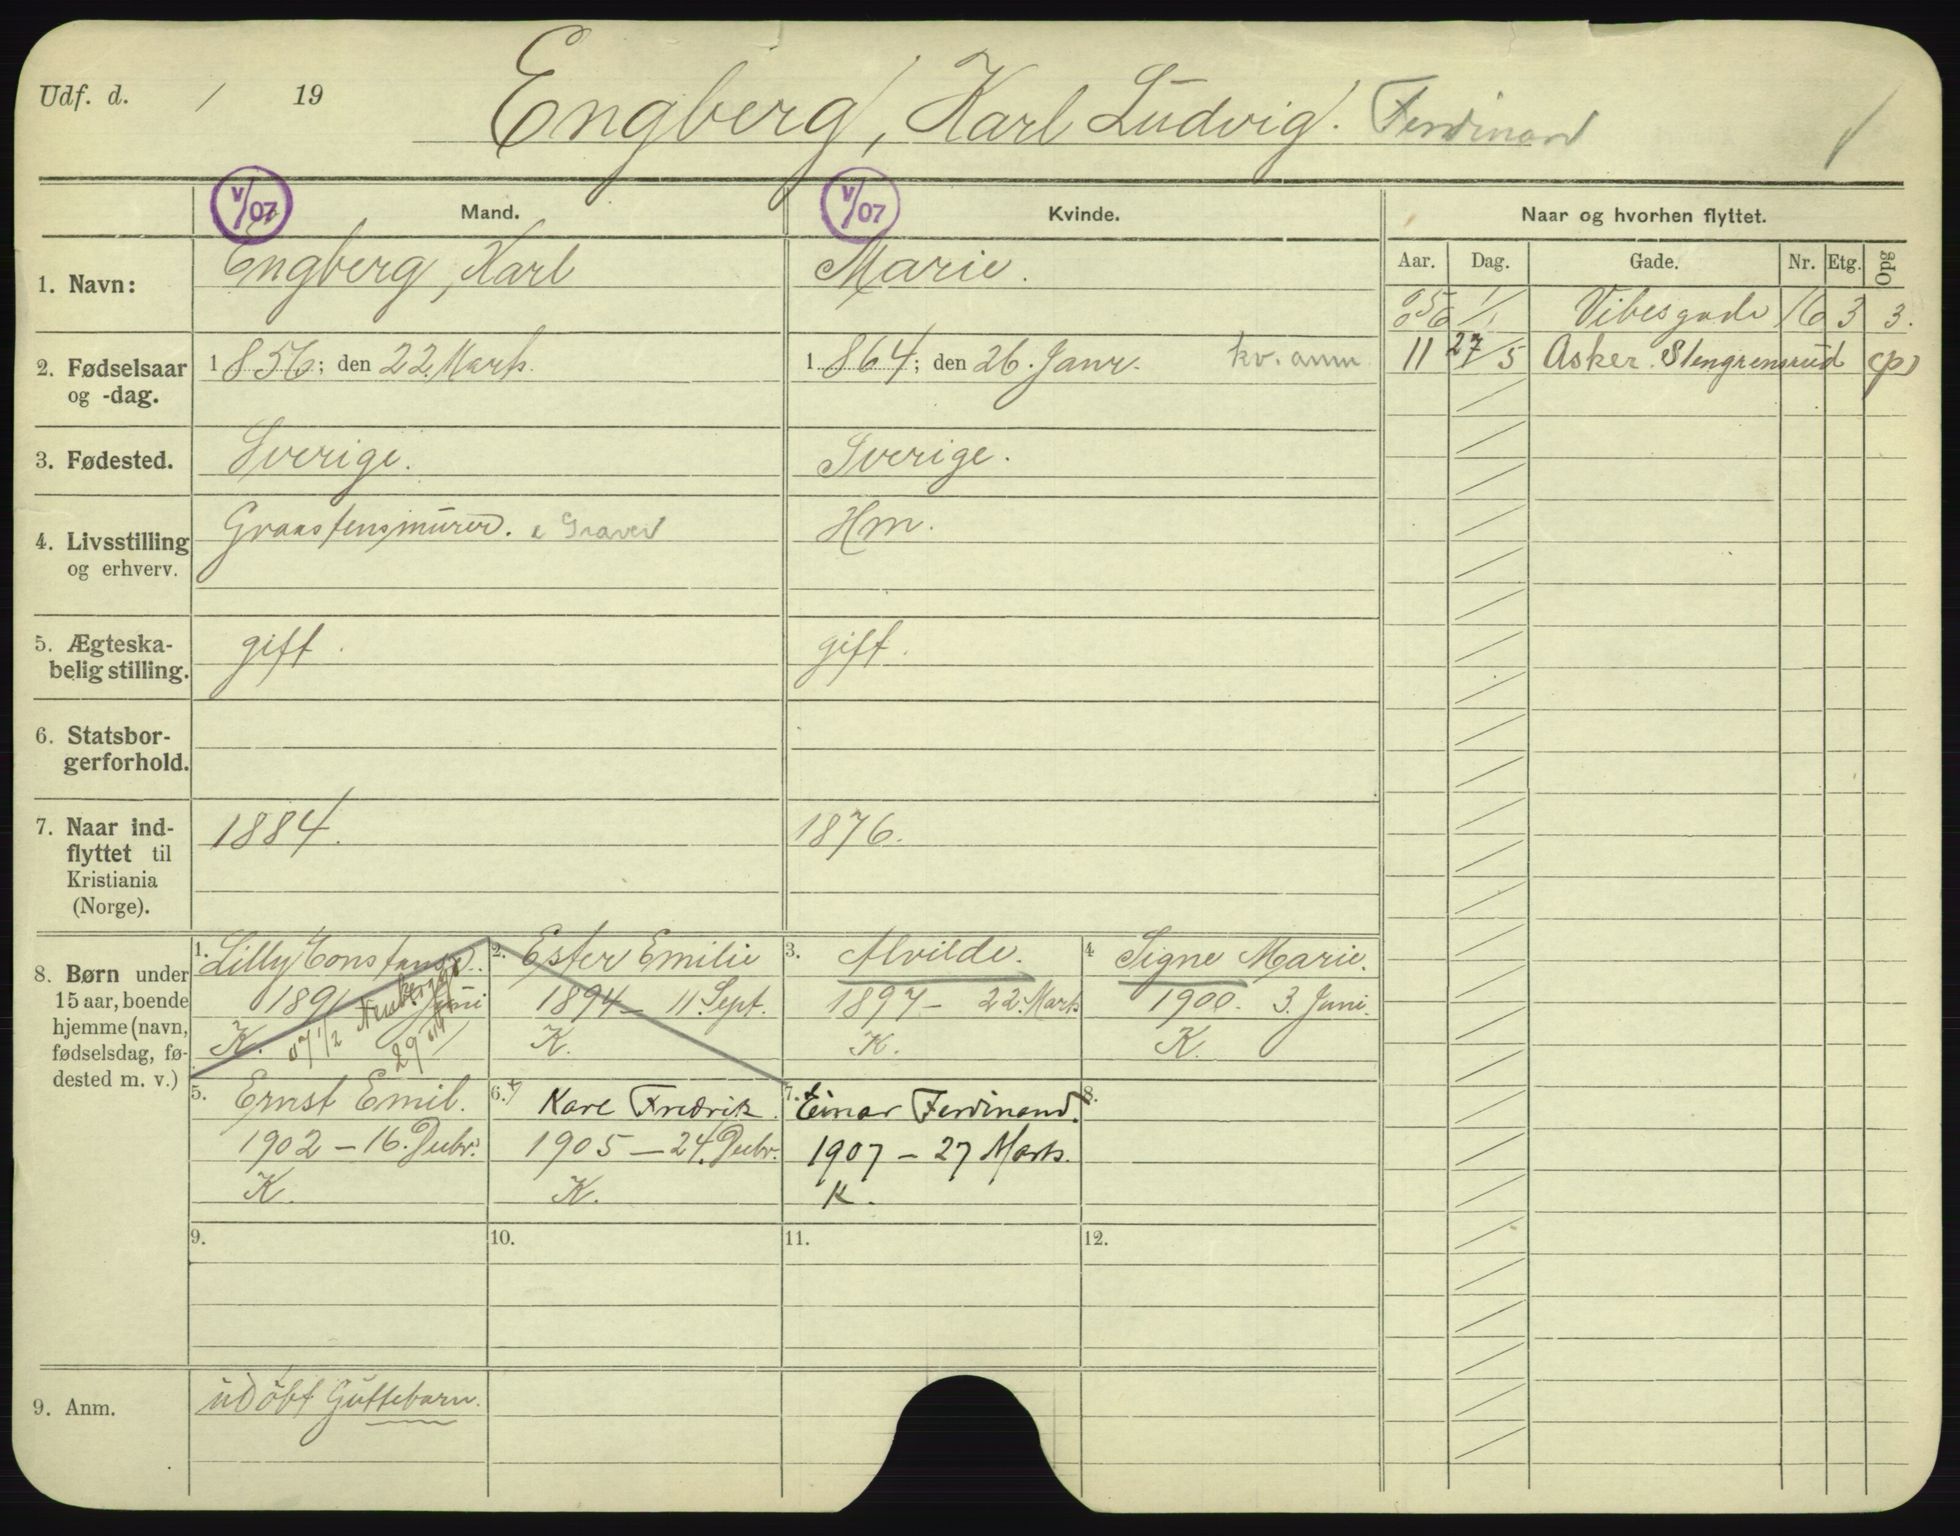 Udf. d. / 19
Engberg, Karl Ludvig. Ferdinand
V/07 Mand. V/07 Kvinde. Naar og hvorhen flyttet.
Aar. Dag. Gade. Nr. Etg. Opg
1. Navn: Engberg, Karl Marie.
1/1 Vibesgade 16 3 3.
11 27/5 Asker. Stengrensrud (p)
2. Fødselsaar 1856; den 22 Marts. 1864; den 26. Janr. kv. anm
og -dag.
3. Fødested. Sverige. Sverige.
4. Livsstilling Graastensmurer. Hm.
og erhverv.
5. Ægteska- gift. gift.
belig stilling.
6. Statsbor-
gerforhold.
7. Naar ind- 1884. 1876.
flyttet til
Kristiania
(Norge).
8. Børn under
15 aar, boende
hjemme (navn,
fødselsdag, fø-
dested m. v.)
1. Lilly Constanse.
1891 Juni
K. 07 1/2
29
2. Ester Emilie
1894 - 11. Sept.
K.
3. Alvilde.
1897 - 22. Marts
K.
4 Signe Marie.
1900. 3. Juni.
K.
5. Ernst Emil.
1902 - 16. Decbr.
K.
6. Karl Fredrik.
1905 - 24. Decbr.
K.
7. Einar Ferdinand.
1907 - 27 Marts.
K.
8.
9. 10. 11. 12.
9. Anm. udøbt Guttebarn.